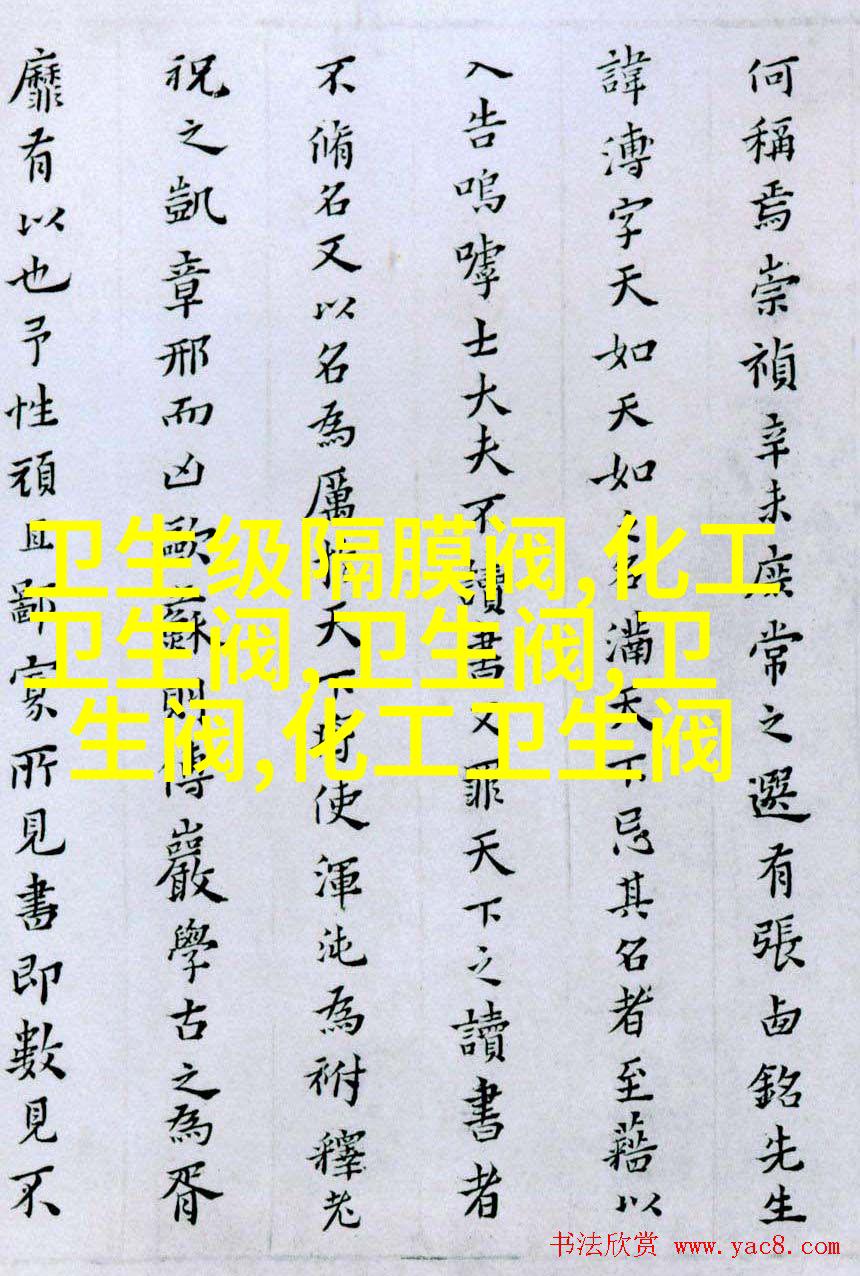 何稱焉崇禎辛未庶常之選有張鹵銘先生
諱溥字天如天如之名滿天下忌其名者至藉以
入告嗚嘑士大夫不讀書又罪天下之讀書者
不脩名又以名為厲於天下將使渾沌為祔釋老
祝之凱章邢而凶歐蘇則傅巖學古之為胥
靡有以也予性頑且鄙家所見書即數見不
卫生级隔膜阀,化工
卫生阀,卫生阀,卫
生阀,化工卫生阀
书法欣赏 www.yac8.com